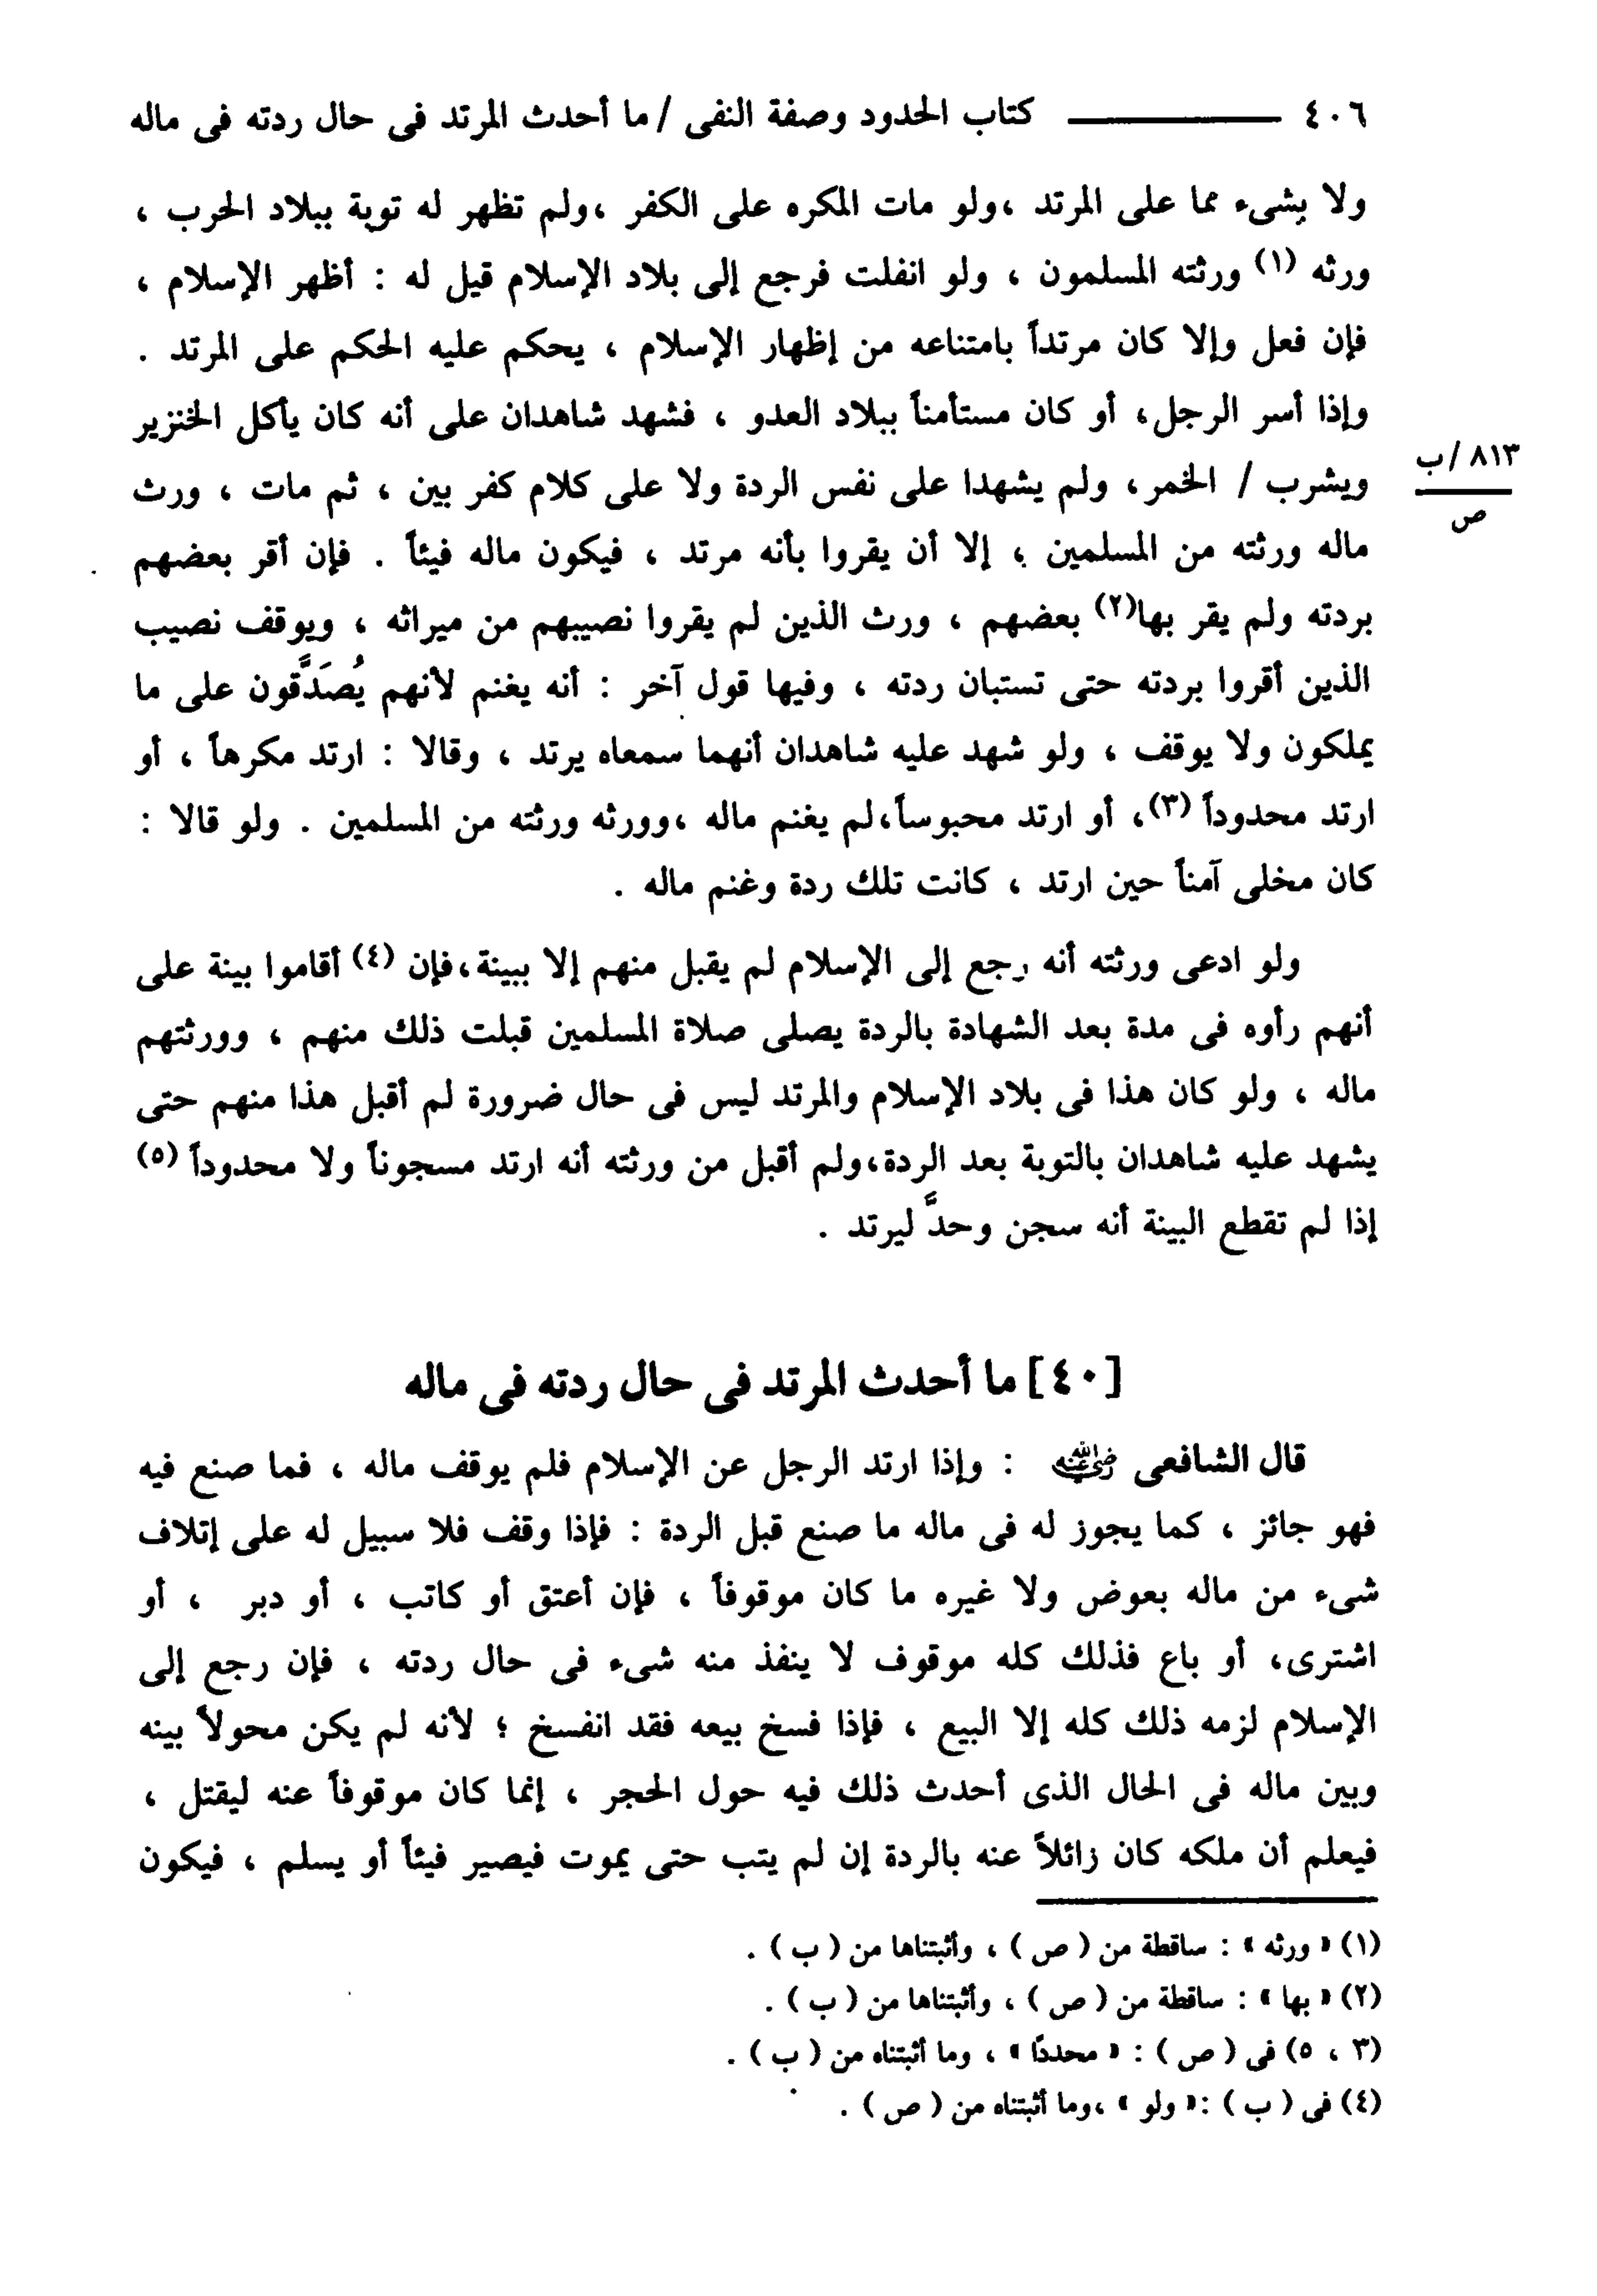 ٤٠٦ ــــــــــ كتاب الحدود وصفة النفى / ما أحدث المرتد فى حال ردته فى ماله
ولا بشىء مما على المرتد ، ولو مات المكره على الكفر ، ولم تظهر له توبة ببلاد الحرب ،
ورثه (١) ورثته المسلمون ، ولو انفلت فرجع إلى بلاد الإسلام قيل له : أظهر الإسلام ،
فإن فعل وإلا كان مرتداً بامتناعه من إظهار الإسلام ، يحكم عليه الحكم على المرتد .
وإذا أسر الرجل، أو كان مستأمناً ببلاد العدو ، فشهد شاهدان على أنه كان يأكل الخنزير
٨١٣/ب
ص
ويشرب / الخمر، ولم يشهدا على نفس الردة ولا على كلام كفر بين ، ثم مات ، ورث
ماله ورثته من المسلمين ، إلا أن يقروا بأنه مرتد ، فيكون ماله فيئاً . فإن أقر بعضهم
بردته ولم يقر بها(٢) بعضهم ، ورث الذين لم يقروا نصيبهم من ميراثه ، ويوقف نصيب
الذين أقروا بردته حتى تستبان ردته ، وفيها قول آخر : أنه يغنم لأنهم يُصَدَّقون على ما
يملكون ولا يوقف ، ولو شهد عليه شاهدان أنهما سمعاه يرتد ، وقالا : ارتد مكرهاً ، أو
ارتد محدوداً (٣)، أو ارتد محبوساً، لم يغنم ماله ، وورثه ورثته من المسلمين . ولو قالا :
كان مخلى آمناً حين ارتد ، كانت تلك ردة وغنم ماله .
ولو ادعى ورثته أنه رجع إلى الإسلام لم يقبل منهم إلا ببينة، فإن (٤) أقاموا بينة على
أنهم رأوه فى مدة بعد الشهادة بالردة يصلى صلاة المسلمين قبلت ذلك منهم ، وورثتهم
ماله ، ولو كان هذا فى بلاد الإسلام والمرتد ليس فى حال ضرورة لم أقبل هذا منهم حتى
يشهد عليه شاهدان بالتوبة بعد الردة، ولم أقبل من ورثته أنه ارتد مسجوناً ولا محدوداً (٥)
إذا لم تقطع البينة أنه سجن وحدَّ ليرتد .
[٤٠] ما أحدث المرتد فى حال ردته فى ماله
قال الشافعى رضي الله عنه : وإذا ارتد الرجل عن الإسلام فلم يوقف ماله ، فما صنع فيه
فهو جائز ، كما يجوز له فى ماله ما صنع قبل الردة : فإذا وقف فلا سبيل له على إتلاف
شىء من ماله بعوض ولا غيره ما كان موقوفاً ، فإن أعتق أو كاتب ، أو دبر ، أو
اشترى، أو باع فذلك كله موقوف لا ينفذ منه شىء فى حال ردته ، فإن رجع إلى
الإسلام لزمه ذلك كله إلا البيع ، فإذا فسخ بيعه فقد انفسخ ؛ لأنه لم يكن محولاً بينه
وبين ماله فى الحال الذى أحدث ذلك فيه حول الحجر ، إنما كان موقوفاً عنه ليقتل ،
فيعلم أن ملكه كان زائلاً عنه بالردة إن لم يتب حتى يموت فيصير فيئاً أو يسلم ، فيكون
(١) « ورثه » : ساقطة من ( ص ) ، وأثبتناها من ( ب ) .
(٢) « بها » : ساقطة من ( ص ) ، وأثبتناها من ( ب ) .
(٣ ، ٥) فى ( ص ) : « محدداً » ، وما أثبتناه من ( ب ) .
(٤) فى ( ب ) : « ولو » ، وما أثبتناه من ( ص ) .